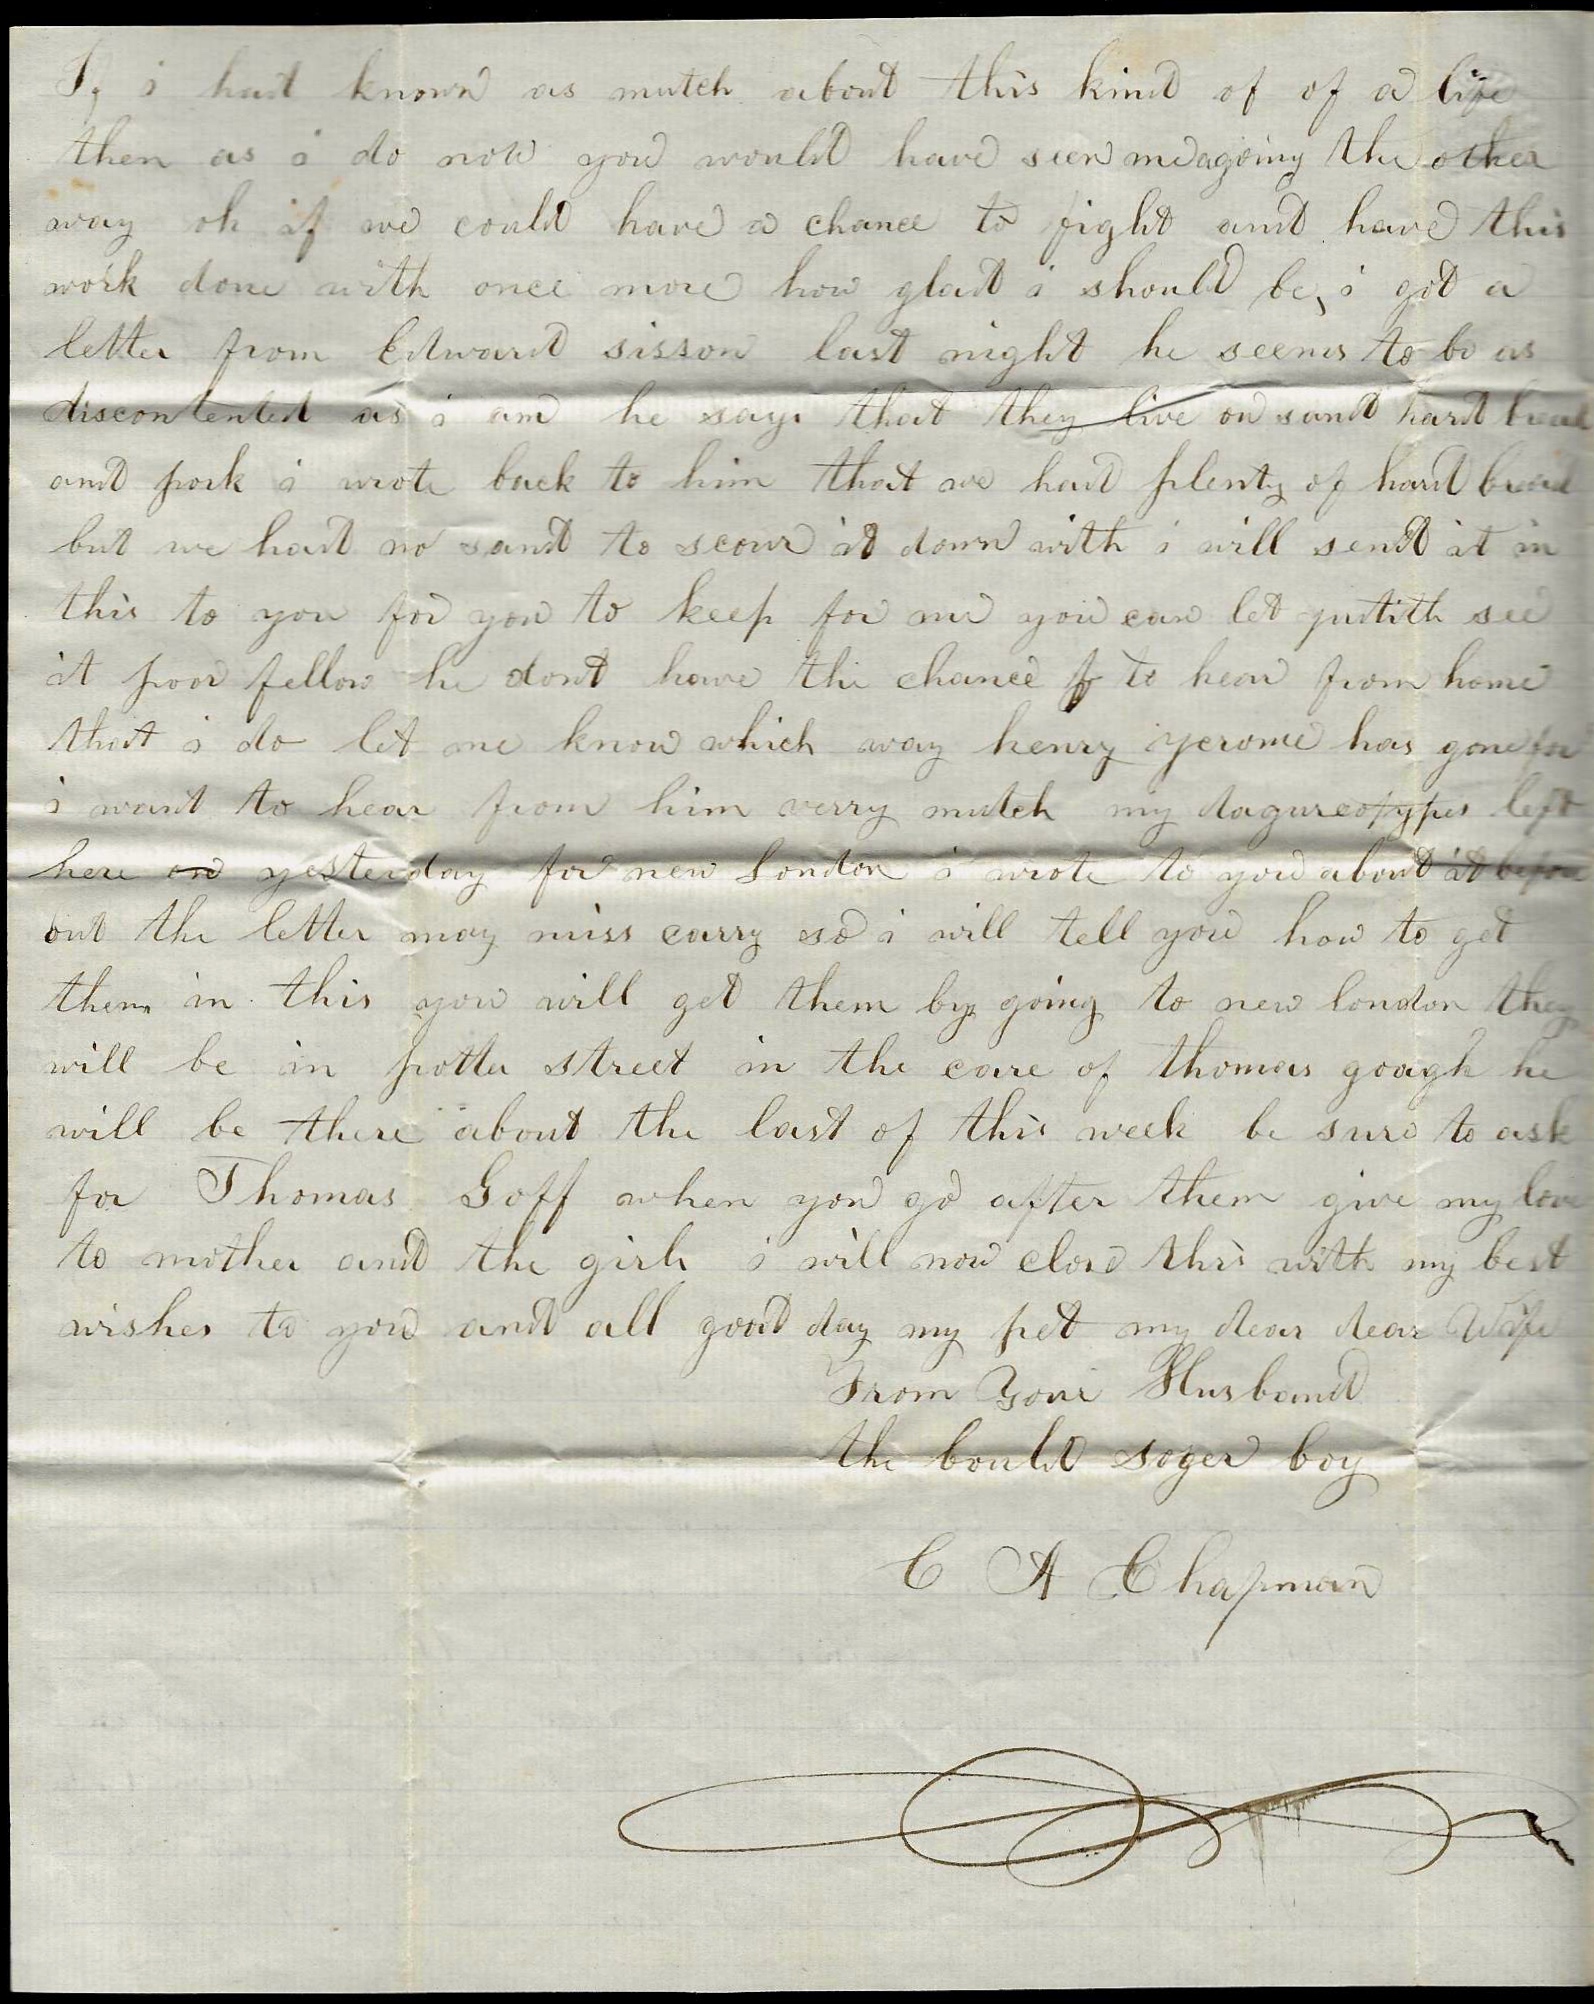 If i had known as mutch about this kind of of a life
then as i do now you would have seen me agoing the other
way oh if we could have a chance to fight and have this
work done with once more how glad i should be, i got a
letter from Edward sisson last night he seems to be as
discontented as i am he says that they live on sand hard bread
and pork i wrote back to him that we had plenty of hard bread
but we had no sand to scour it down with i will send it in
this to you for you to keep for me you can let judith see
it poor fellow he dont have the chance to hear from home
that i do let me know which way henry jerome has gone for
i want to hear from him verry mutch my dagureotypes left
here on yesterday for new London i wrote to you about it before
but the letter may miss carry so i will tell you how to get
them in this you will get them by going to new london they
will be in potter street in the care of thomas goagh he
will be there about the last of this week be sure to ask
for Thomas Goff when you go after them give my love
to mother and the girls i will now close this with my best
wishes to you and all good day my pet my dear dear Wife
From Your Husband
the bould soger boy
C A Chapman